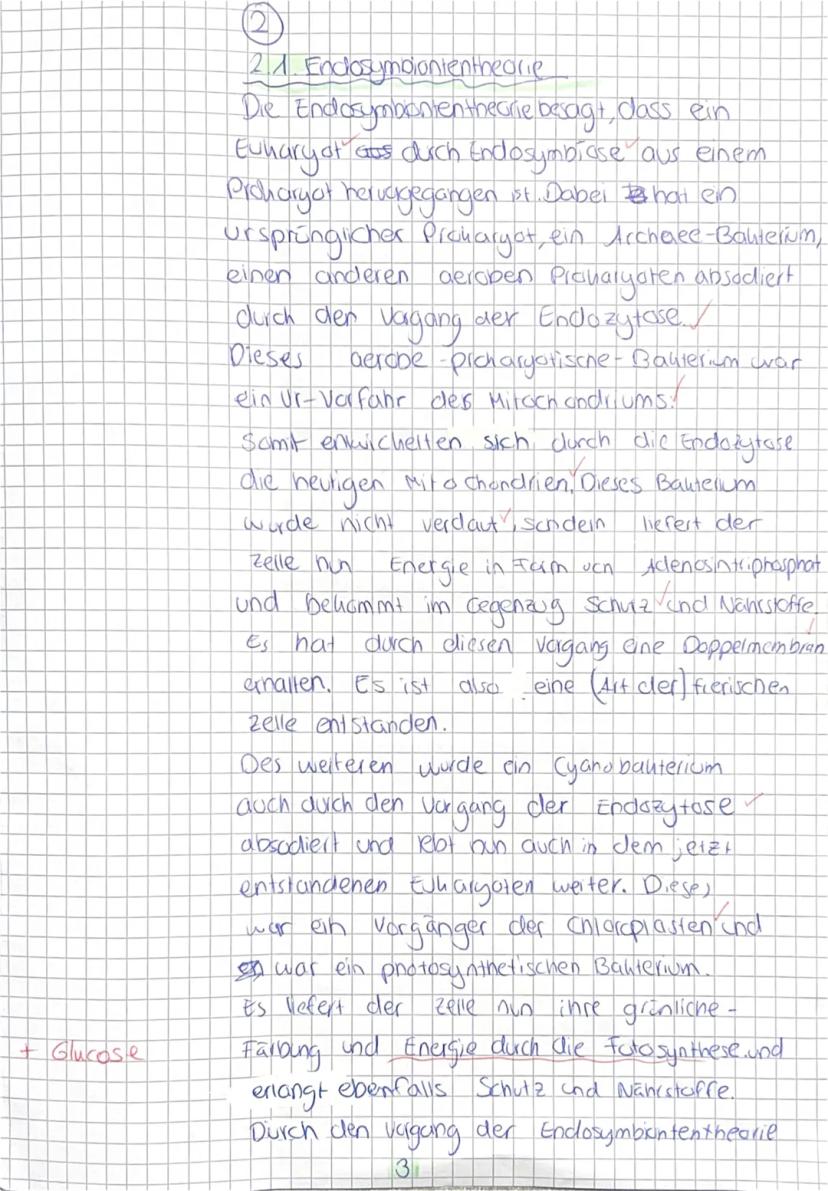 2
2.1. Endosymbiontentheorie
Die Endosymbiontentheorie besagt, dass ein
Eukaryot durch Endosymbiose aus einem
Prokaryot hervorgegangen ist. Dabei hat ein
ursprünglicher Prokaryot, ein Archaee-Bakterium,
einen anderen aeroben Prokaryoten absodiert
durch den Vorgang der Endozytose.
Dieses aerobe-prokaryotische-Bakterium war
ein Ur-Vorfahr des Mitochondriums.
Somit enwickelten sich durch die Endozytose
die heutigen Mitochondrien. Dieses Bakterium
wurde nicht verdaut, sondern liefert der
Zelle nun Energie in Form von Adenosintriphosphat
und bekommt im Gegenzug Schutz und Nährstoffe.
Es hat durch diesen Vorgang eine Doppelmembran
erhalten. Es ist also eine (Art der) tierischen
Zelle entstanden.
Des weiteren wurde ein Cyanobakterium
auch durch den Vorgang der Endozytose
absodiert und lebt nun auch in dem jetzt
entstandenen Eukaryoten weiter. Dieses
war ein Vorgänger der Chloroplasten und
war ein photosynthetischen Bakterium.
Es liefert der Zelle nun ihre grünliche-
+ Glucose Färbung und Energie durch die Fotosynthese und
erlangt ebenfalls Schutz und Nährstoffe.
Durch den Vorgang der Endosymbiontentheorie
3